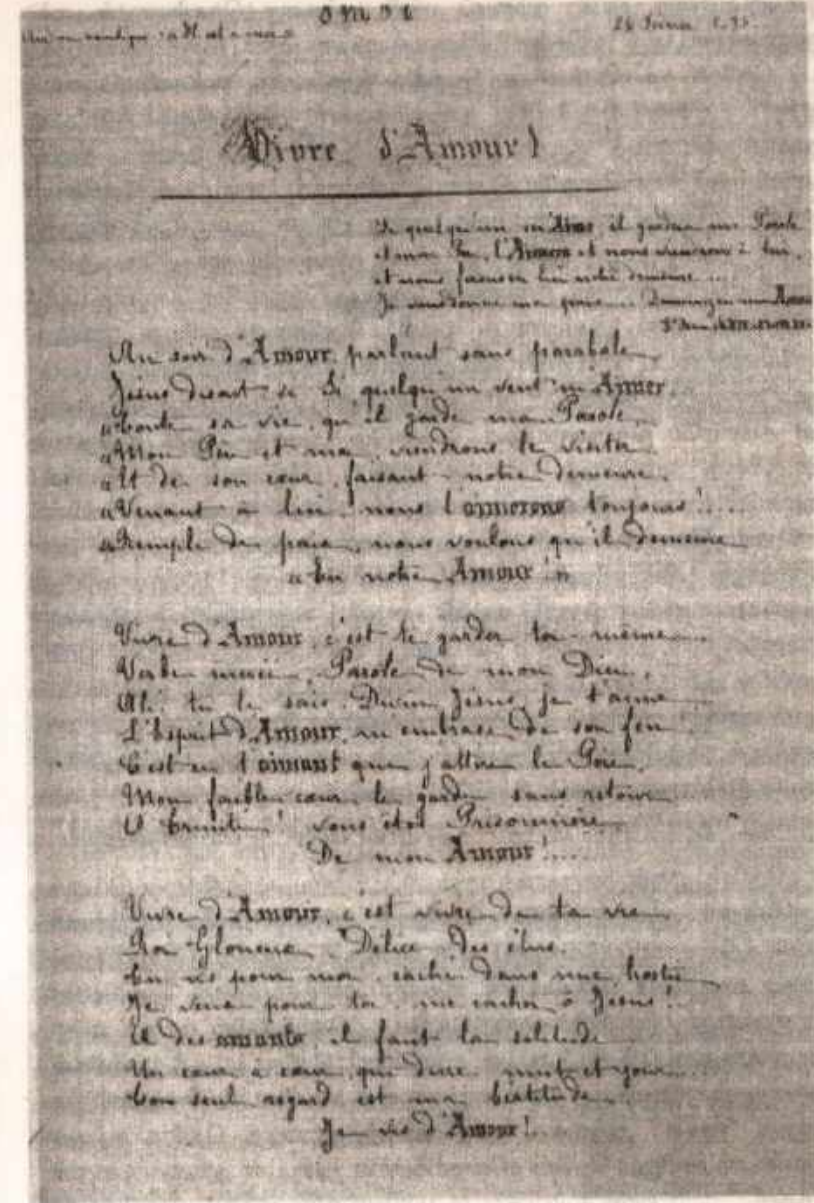 26 Février
Vivre d'Amour !
Si quelqu'un m'Aime, il gardera ma Parole
et mon Père l'Aimera et nous viendrons à lui,
et nous ferons en lui notre demeure....
Je vous donne ma paix... Demeurez en mon Amour
Au soir d'Amour, parlant sans parabole
Jésus disait : « Si quelqu'un veut m'Aimer,
« Toute sa vie, qu'il garde ma Parole
« Mon Père et moi viendrons le visiter.
« Et de son cœur, faisant notre demeure,
« Venant à lui, nous l'aimerons toujours !....
« Rempli de paix, nous voulons qu'il demeure
« En notre Amour ! »
Vivre d'Amour, c'est te garder toi-même
Verbe incréé, Parole de mon Dieu,
Ah ! tu le sais, Divin Jésus, je t'aime
L'Esprit d'Amour m'embrase de son feu
C'est en t'aimant que j'attire le Père
Mon faible cœur le garde sans retour
O Trinité ! vous êtes Prisonnière
De mon Amour !....
Vivre d'Amour, c'est vivre de ta vie
Roi Glorieux, Délice des élus.
Tu vis pour moi, caché dans une hostie
Je veux pour toi, me cacher ô Jésus !
A des amants, il faut la solitude
Un cœur à cœur qui dure nuit et jour
Ton seul regard est ma béatitude
Je vis d'Amour !..